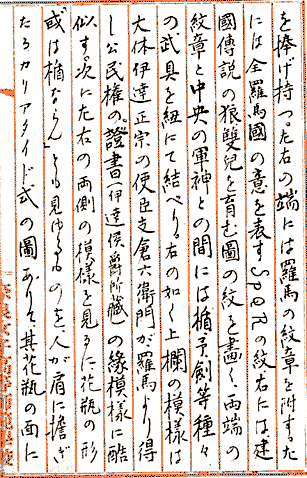 を捧げ持つ。左右の端には羅馬の紋章を附す。左
には全羅馬國の意を表すSPQRの紋右には建
國傳説の狼雙兒を育む圖の紋を畫く、両端の
紋章と中央の軍神との間には楯予劍等種々
の武具を紐にて結べり。右の如く上欄の模様は
大体伊達正宗の使臣支倉六衛門が羅馬より得
し公民権の。證書(伊達侯爵所蔵)の縁模様に酷
似す。次に左右の両側の模様を見るに花瓶の形
或は楯ならんとも見ゆるものを人が肩に擔ぎ
たるカリアタイド式の圖あり。其花瓶の面に